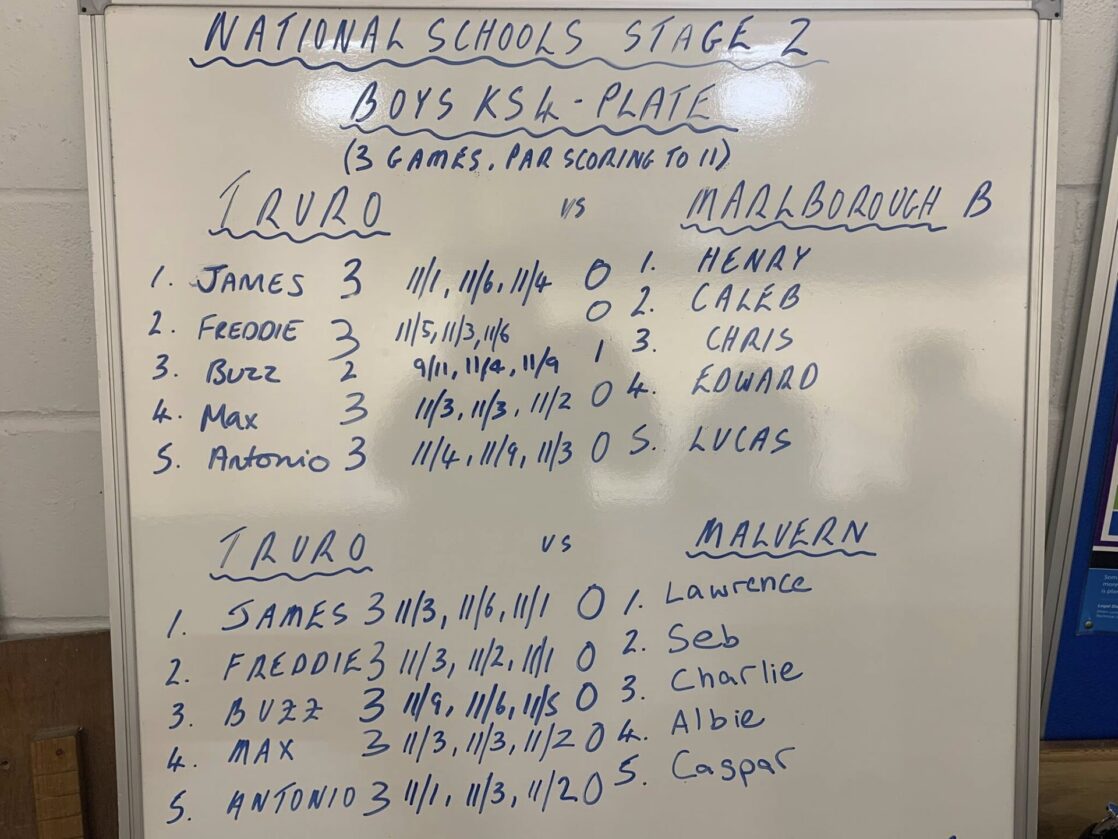 NATIONAL SCHOOLS STAGE 2
BOYS KS4 - PLATE
(3 GAMES. PAR SCORING TO 11)
TRURO vs MARLBOROUGH B
1. JAMES 3 11/1, 11/6, 11/4 0 1. HENRY
2. FREDDIE 3 11/5, 11/3, 11/6 0 2. CALEB
3. BUZZ 2 9/11, 11/4, 11/9 1 3. CHRIS
4. Max 3 11/3, 11/3, 11/2 0 4. EDWARD
5. Antonio 3 11/4, 11/9, 11/3 0 5. LUCAS
TRURO vs MALVERN
1. JAMES 3 11/3, 11/6, 11/1 0 1. Lawrence
2. FREDDIE 3 11/3, 11/2, 11/1 0 2. Seb
3. BUZZ 3 11/9, 11/6, 11/5 0 3. Charlie
4. MAX 3 11/3, 11/3, 11/2 0 4. Albie
5. ANTONIO 3 11/1, 11/3, 11/2 0 5. Caspar